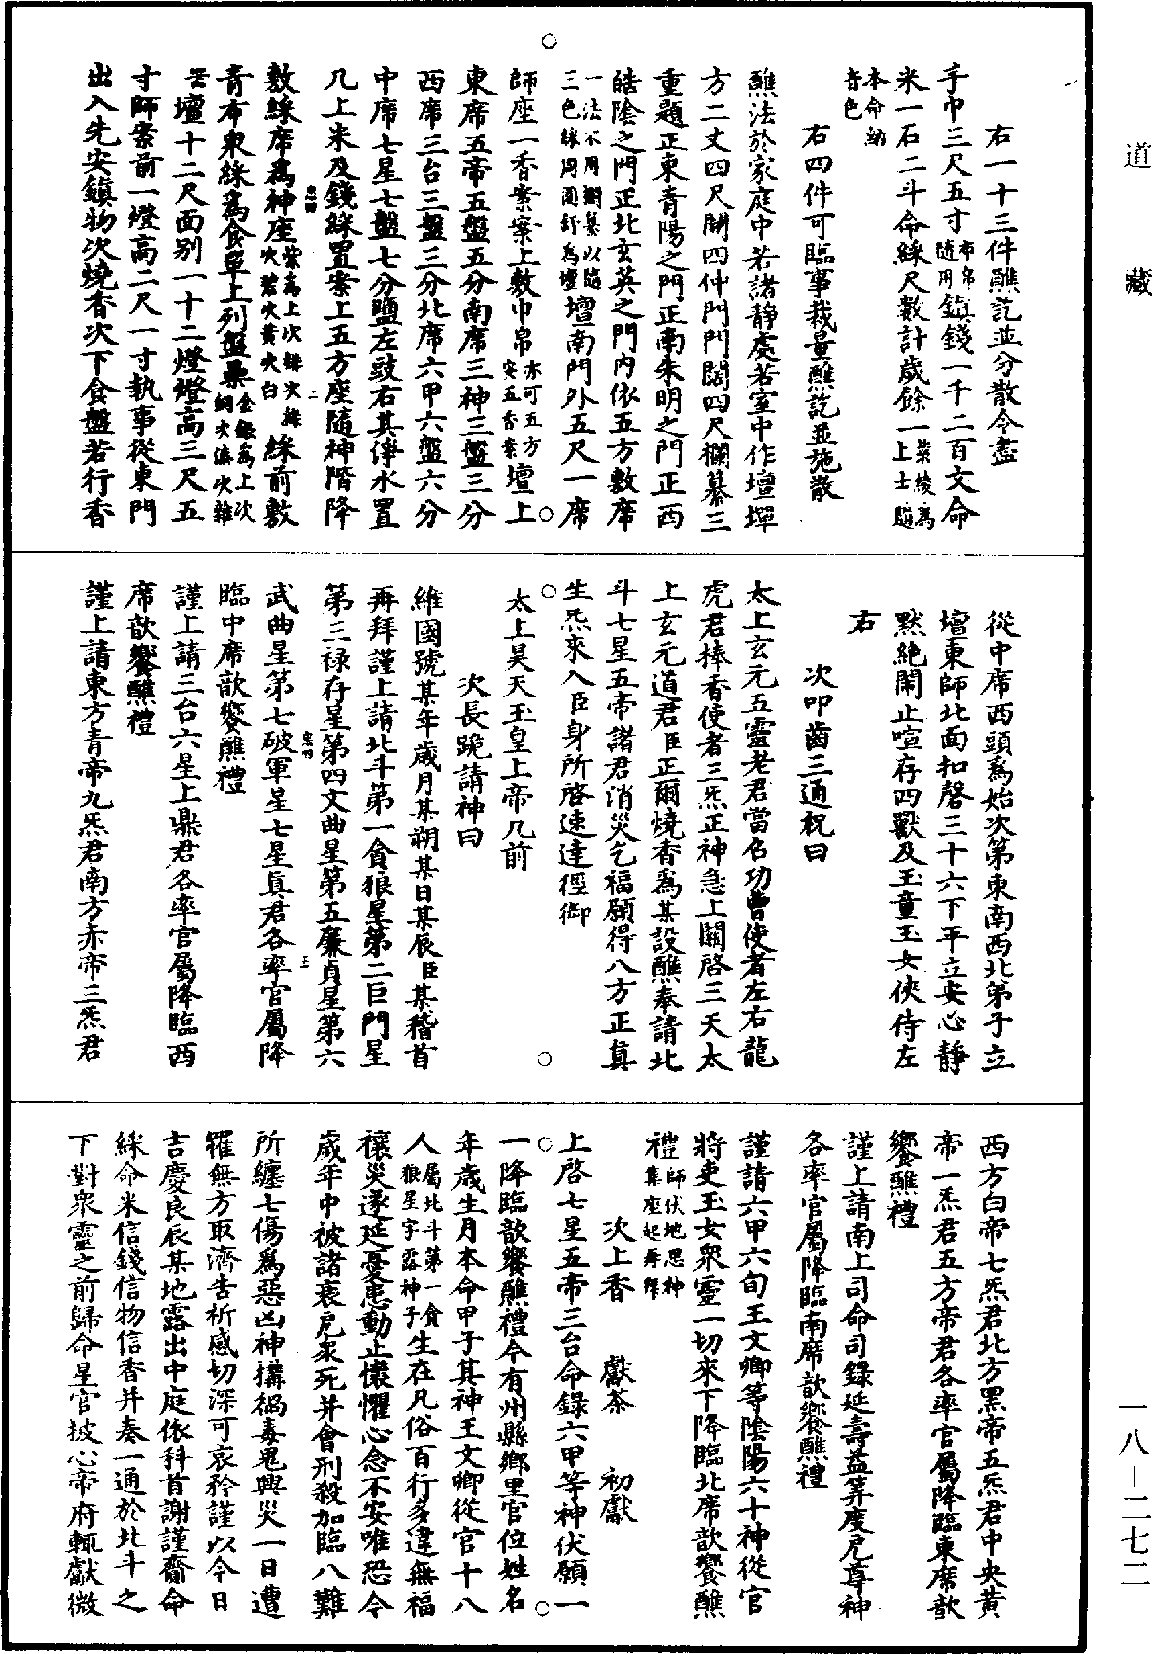 道藏
右一十三件醮訖並分散令盡
手巾三尺五寸布帛隨用鎮錢一千二百文命
米一石二斗命綵尺數計歲餘一上士隨
本命納音色
右四件可臨事裁量醮訖並施散
醮法於家庭中若諸靜處若室中作壇墠
方二丈四尺開四仲門門闊四尺欄纂三
重題正東青陽之門正南朱明之門正西
皓陰之門正北玄英之門內依五方敷席
一法不用欄纂以隨三色綵用圍釘為壇壇南門外五尺一席
師座一香案案上敷巾帛亦可五方安五香案壇上
東席五帝五盤五分南席三神三盤三分
西席三台三盤三分北席六甲六盤六分
中席七星七盤七分鹽左豉右其淨水置
几上米及錢綵置案上五方座隨神階降
二
敷綵席為神座紫為上次緋次綠次碧次黃次白綵前敷
青布衆綵為食單上列盤果金銀為上次銅次漆次雜
壇十二尺面別一十二燈燈高三尺五
寸師案前一燈高二尺一寸執事從東門
出入先安鎮物次燒香次下食盤若行香
從中席西頭為始次第東南西北弟子立
壇東師北面扣磬三十六下平立安心靜
默絶鬧止喧存四獸及玉童玉女俠侍左
右
次叩齒三通祝曰
太上玄元五靈老君當召功曹使者左右龍
虎君捧香使者三炁正神急上關啓三天太
上玄元道君臣正爾燒香為某設醮奉請北
斗七星五帝諸君消災乞福願得八方正真
生炁來入臣身所啓速達徑御
太上昊天玉皇上帝几前
次長跪請神曰
維國號某年歲月某朔某日某辰臣某稽首
再拜謹上請北斗第一貪狼星第二巨門星
第三祿存星第四文曲星第五廉貞星第六
三
武曲星第七破軍星七星真君各率官屬降
臨中席歆饗醮禮
謹上請三台六星上鼎君各率官屬降臨西
席歆饗醮禮
謹上請東方青帝九炁君南方赤帝三炁君
西方白帝七炁君北方黑帝五炁君中央黃
帝一炁君五方帝君各率官屬降臨東席歆
饗醮禮
謹上請南上司命司錄延壽益筭度厄尊神
各率官屬降臨南席歆饗醮禮
謹請六甲六旬王文卿等陰陽六十神從官
將吏玉女衆靈一切來下降臨北席歆饗醮
禮師伏地思神集座起再拜
次上香　獻茶　初獻
上啓七星五帝三台命錄六甲等神伏願一
一降臨歆饗醮禮今有州縣鄉里官位姓名
年歲生月本命甲子其神王文卿從官十八
人屬北斗第一貪狼星字露神子生在凡俗百行多違無福
禳災遂延憂患動止懷懼心念不安唯恐今
歲年中被諸衰厄衆死并會刑殺加臨八難
所纏七傷為惡凶神搆禍毒鬼興災一日遭
羅無方取濟苦祈感切深可哀矜謹以今日
吉慶良辰某地露出中庭依科首謝謹齎命
綵命米信錢信物信香并奏一通於北斗之
下對衆靈之前歸命星官披心帝府輒獻微
一八—二七二